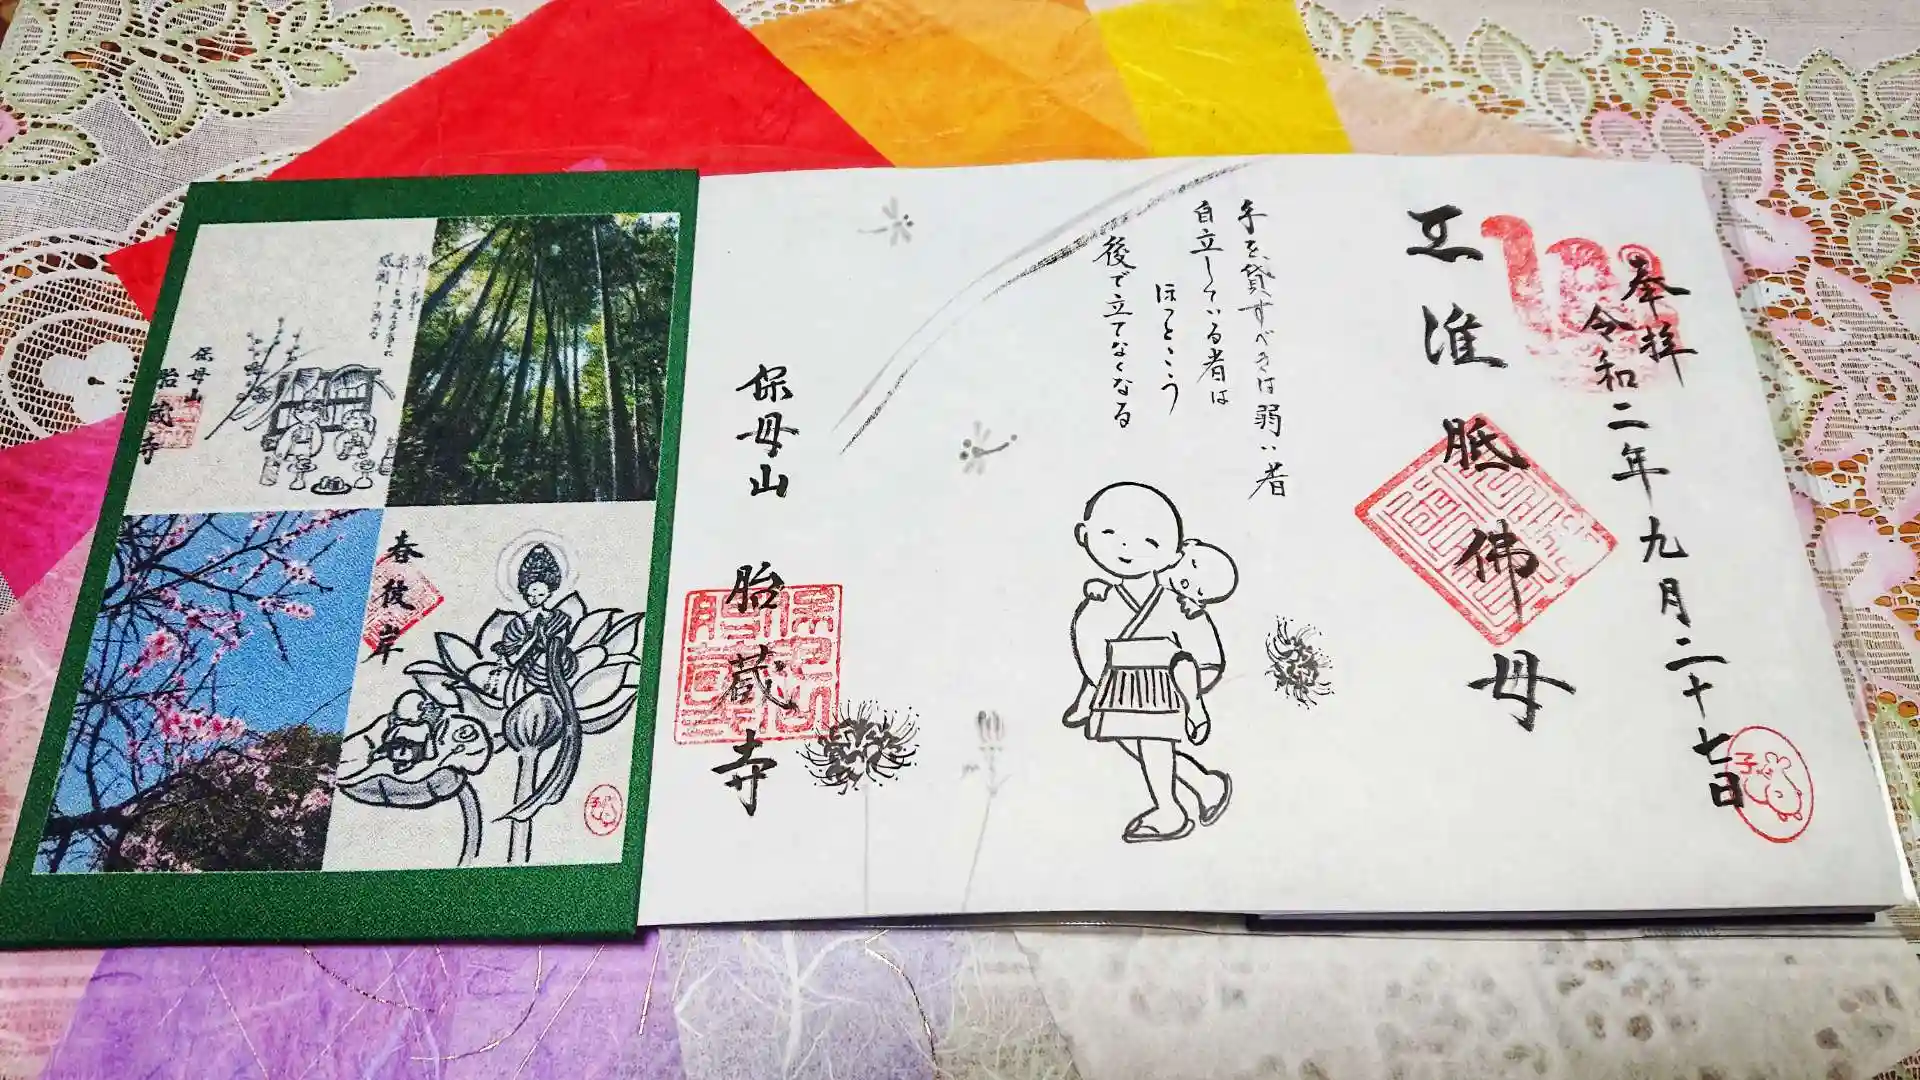 奉拝
令和二年九月二十七日
子
准胝佛母
手を貸すべきは弱い者
自立している者は
ほっとこう
後で立てなくなる
保母山 胎蔵寺
保母山
胎蔵寺
春彼岸